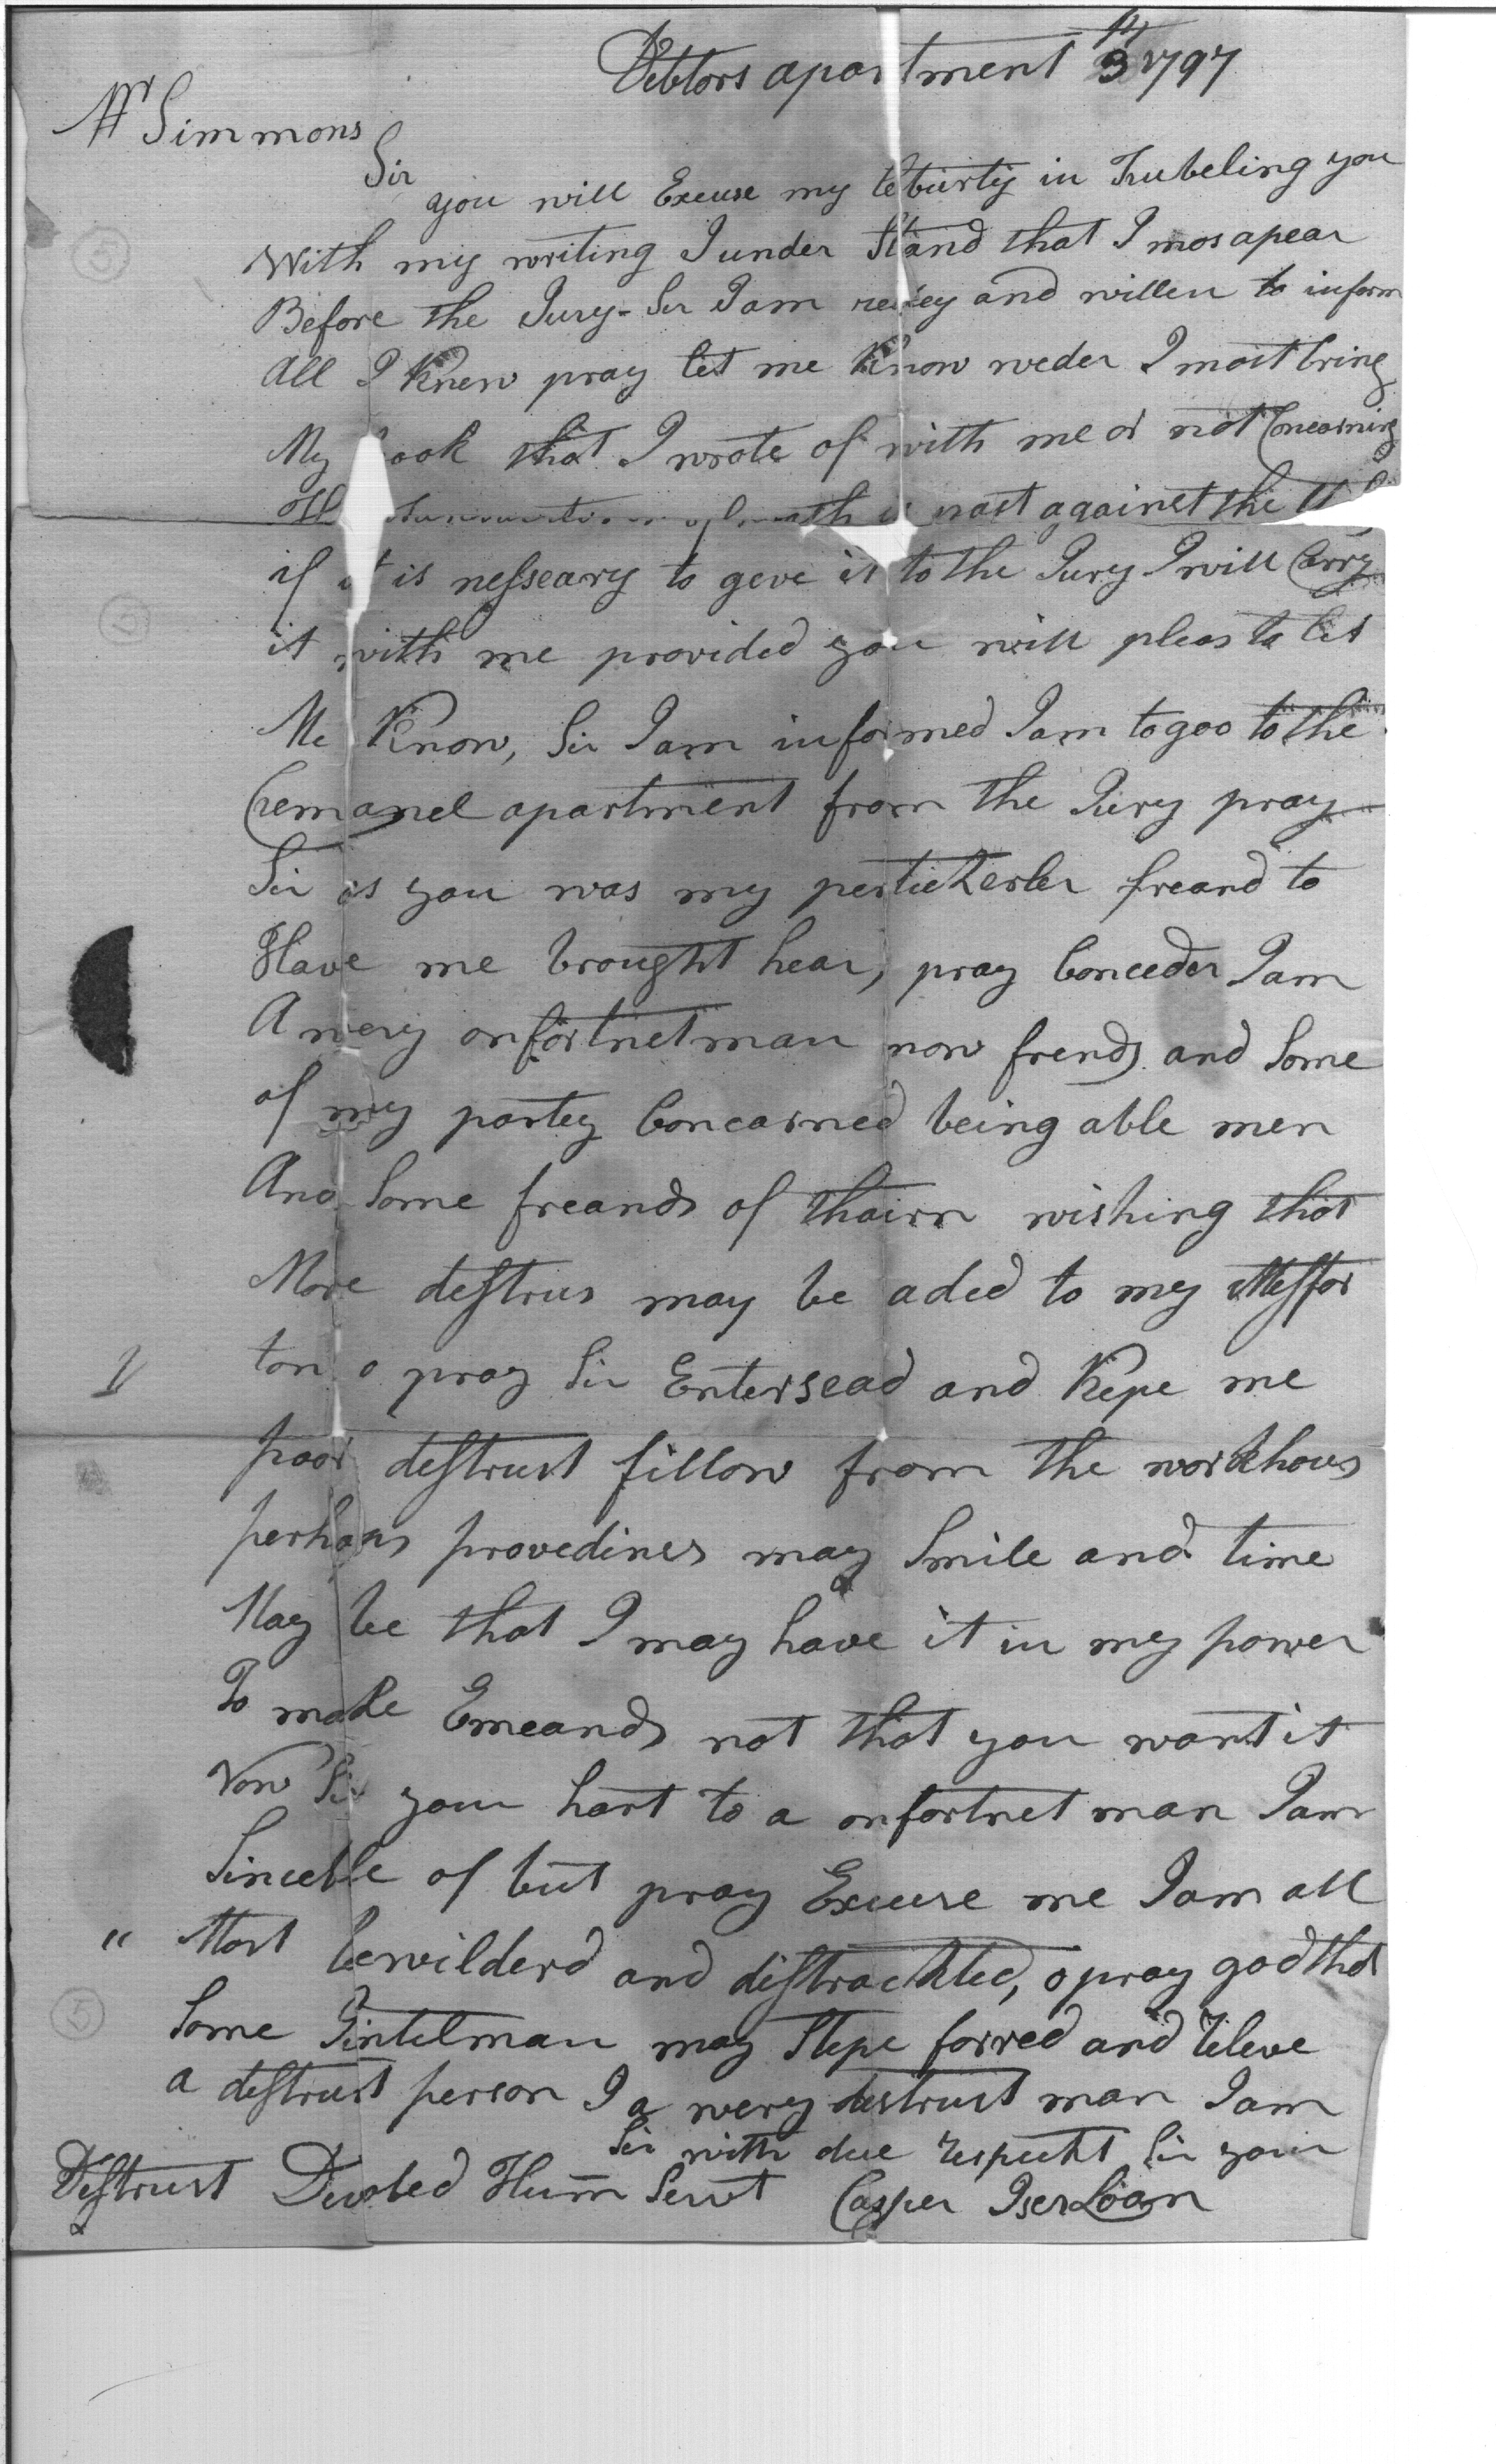 Debtors apartment 3 1797
Mr Simmons
Sir
you will Excuse my leburty in Trubeling you
With my writing I under Stand that I mos apear
Before the Jury - Sir I am redey and willen to inform
All I Knew pray let me Know weder I most bring
My book that I wrote of with me or not Concarning
is past against the
if it is nessseary to geve it to the Jury I will Carry
it with me provided you will pleas to let
Me Know, Sir I am informed I am to goo to the
Cremanel apartment from the Jury pray
Sir as you was my pertickerler freand to
Have me brought hear, pray Conceder I am
A wery onfortnet man now frends and Some
of my partey Concarned being able men
And Some freands of thairn wishing that
More destrus may be aded to my Messfor
ton o pray Sir Entersead and Kepe me
poor destrust fillow from the workhous
perhaps provedines may Smile and time
May be that I may have it in my power
To make Emeands not that you want it
Now Sir your hart to a onfortnet man I am
Sinceble of but pray Excuse me I am all
" Most bewilderd and distrackted, o pray god that
Some Gintelman may Stepe forred and releve
a destrust person I a wery destrust man I am
Sir with due respeckt Sir your
Destrust Devoted Hum Servt Casper Iserloan